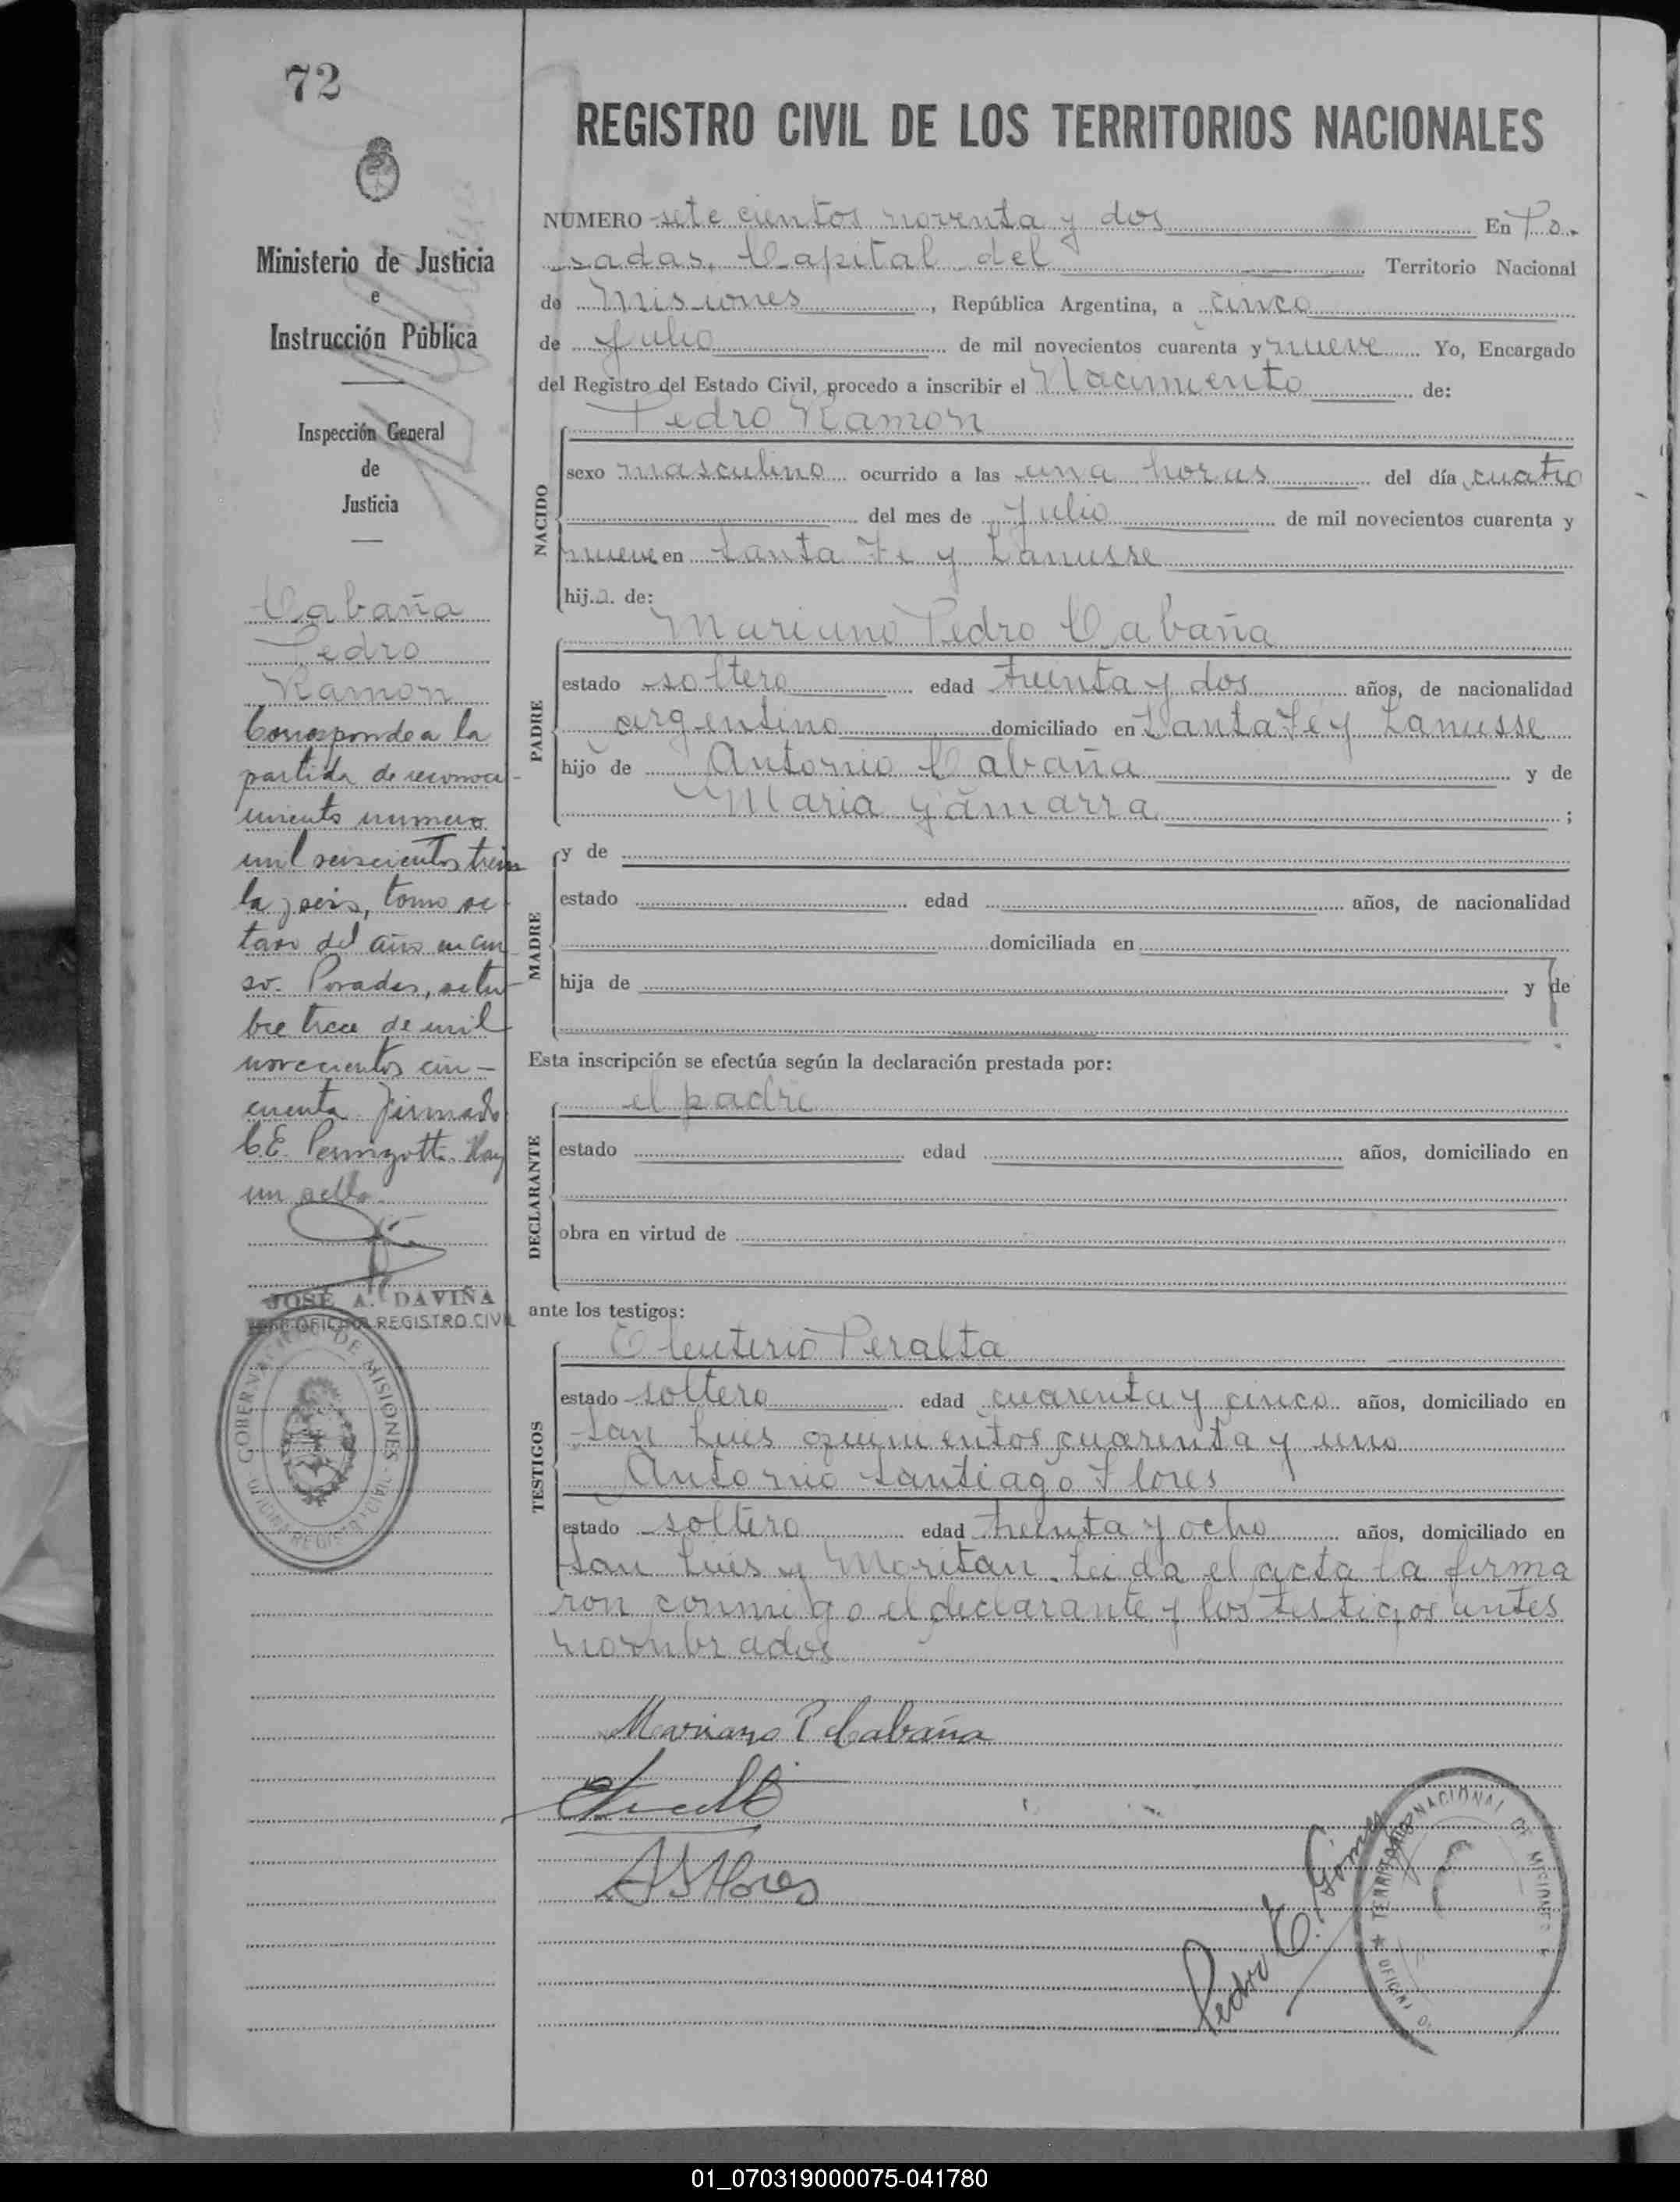 72
REGISTRO CIVIL DE LOS TERRITORIOS NACIONALES
Ministerio de Justicia
e
Instrucción Pública
Inspección General
de
Justicia
Cabaña
Pedro
Ramon
Corresponde a la
partida de reconoci-
miento numero
mil seiscientos trein
ta y seis, tomo oc
tavo del año en cur
so. Posadas, octu-
bre trece de mil
novecientos cin-
cuenta firmado
C.E. Hay
un sello.
JOSÉ A. DAVIÑA
OFICINA REGISTRO CIVIL
GOBERNACION DE MISIONES
NUMERO sete cientos noventa y dos En Po-
sadas, Capital del Territorio Nacional
de Misiones, República Argentina, a cinco
de Julio de mil novecientos cuarenta y nueve Yo, Encargado
del Registro del Estado Civil, procedo a inscribir el Nacimiento de:
Pedro Ramon
NACIDO
sexo masculino ocurrido a las una horas del día cuatro
del mes de Julio de mil novecientos cuarenta y
nueve en Santa Fe y Lanusse
hij.o. de:
Mariano Pedro Cabaña
PADRE
estado soltero edad treinta y dos años, de nacionalidad
argentino domiciliado en Santa Fe y Lanusse
hijo de Antonio Cabaña y de
Maria Gamarra ;
MADRE
y de
estado edad años, de nacionalidad
domiciliada en
hija de y de
Esta inscripción se efectúa según la declaración prestada por:
el padre
DECLARANTE
estado edad años, domiciliado en
obra en virtud de
ante los testigos:
Eleuterio Peralta
TESTIGOS
estado soltero edad cuarenta y cinco años, domiciliado en
San Luis quinientos cuarenta y uno
Antonio Santiago Flores
estado soltero edad treinta y ocho años, domiciliado en
San Luis y Moritan. Leida el acta la firma
ron conmigo el declarante y los testigos antes
nombrados
Mariano P Cabaña
A S Flores
Pedro E. Gómez
TERRITORIO NACIONAL DE MISIONES
01_070319000075-041780